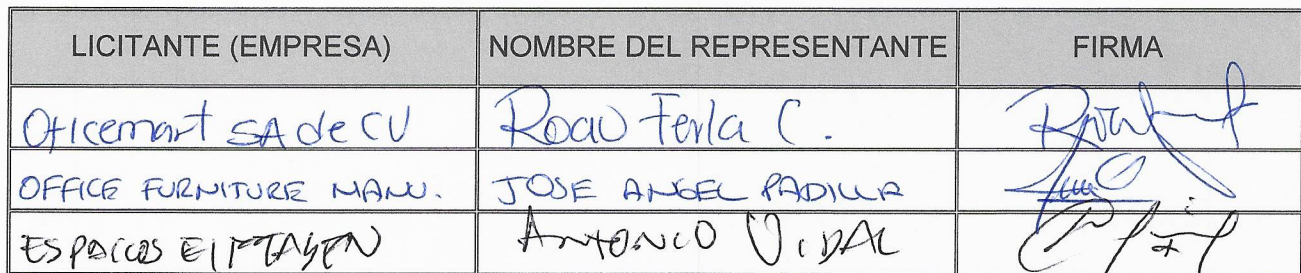 LICITANTE (EMPRESA) NOMBRE DEL REPRESENTANTE FIRMA
Oficemart SA de CV C.
OFFICE FURNITURE MANU. JOSE ANGEL PADILLA
ESPACIOS ANTONIO VIDAL